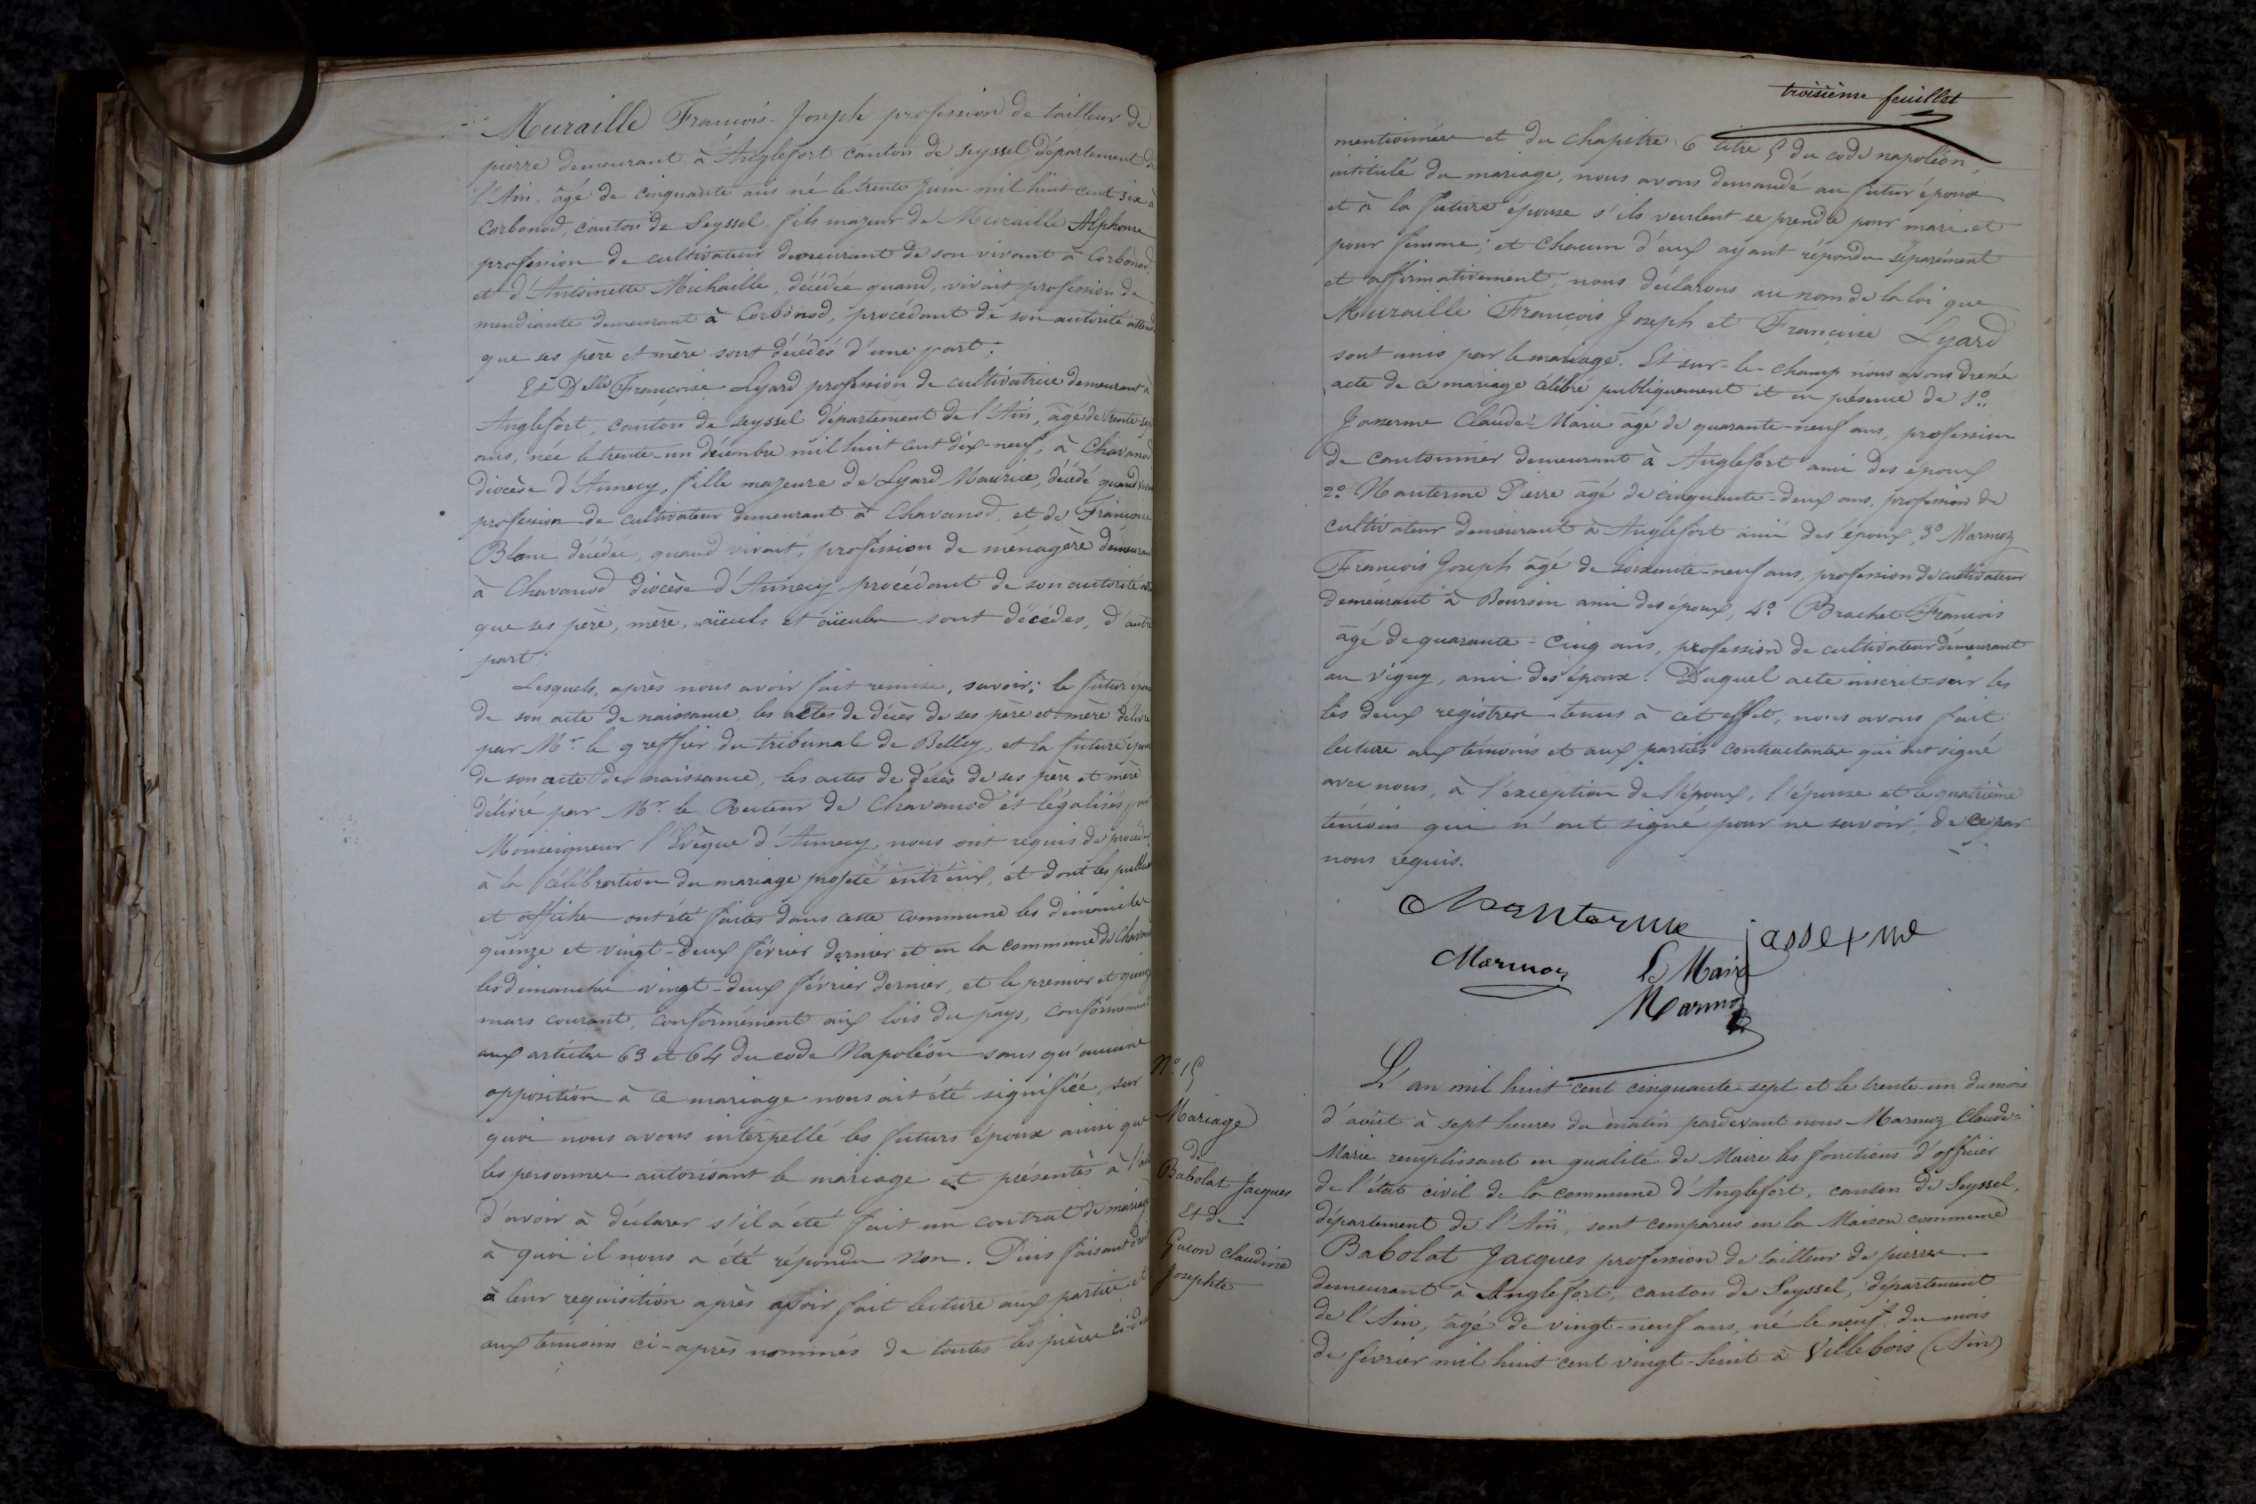 Muraille François-Joseph profession de tailleur de
pierre demeurant à Anglefort canton de Seyssel département de
l'Ain, âgé de cinquante ans né le trente juin mil huit cent six à
Corbonod, canton de Seyssel fils majeur de Muraille Alphonse
profession de cultivateur demeurant de son vivant à Corbonod,
et d'Antoinette Michaille, décédée quand vivait profession de
mendiante demeurant à Corbonod, procédant de son autorité attendu
que ses père et mère sont décédés d'une part;
Et Dlle Françoise Lyard profession de cultivatrice demeurant à
Anglefort, canton de Seyssel département de l'Ain, âgé de trente-sept
ans, née le trente-un décembre mil huit cent dix-neuf, à Chavanod
diocèse d'Annecy, fille majeure de Lyard Maurice, décédé quand vivait
profession de cultivateur demeurant à Chavanod, et de Françoise
Blanc décédée, quand vivait, profession de ménagère demeurant
à Chavanod diocèse d'Annecy procédant de son autorité
que ses père, mère, aïeuls et aïeules sont décédés, d'autre
part
Lesquels, après nous avoir fait remise, savoir: le futur époux
de son acte de naissance, les actes de décès de ses père et mère délivré
par Mr. le greffier du tribunal de Belley, et la future épouse
de son acte de naissance, les actes de décès de ses père et mère
délivré par Mr. le Recteur de Chavanod et légalisés par
Monseigneur l'Evêque d'Annecy, nous ont requis de procéder
à la célébration du mariage projeté entr'eux, et dont les
et affiches ont été faites dans cette commune les dimanches
quinze et vingt-deux février dernier et en la commune de Chavanod
les dimanches vingt-deux février dernier, et le premier et quinze
mars courant, conformément aux lois du pays, conformément
aux articles 63 et 64 du code Napoléon sans qu'aucune
opposition à ce mariage nous ait été signifiée, sur
quoi nous avons interpellé les futurs époux ainsi que
les personnes autorisant le mariage et présentes à
d'avoir à déclarer s'il a été fait un contrat de mariage
à quoi il nous a été répondu Non. Puis faisant droit
à leur requisition après avoir fait lecture aux parties et
aux témoins ci-après nommés de toutes les pièces
troisième feuillet
mentionnées et du chapitre 6 titre 5 du code napoléon,
intitulé du mariage, nous avons demandé au futur époux
et à la future épouse s'ils veulent se prendre pour mari et
pour femme; et chacun d'eux ayant répondu séparément
et affirmativement, nous déclarons au nom de la loi que
Muraille François Joseph et Françoise Lyard
sont unis par le mariage. Et sur-le-champ nous avons dressé
acte de ce mariage célébré publiquement et en présence de 1o.
Jasserme Claude-Marie âgé de quarante-neuf ans, profession
de cantonnier demeurant à Anglefort ami des époux
2o. Manterme Pierre âgé de cinquante-deux ans, profession de
cultivateur demeurant à Anglefort ami des époux, 3o Marmoz
François Joseph âgé de soixante-neuf ans, profession de cultivateur
demeurant à Boursin ami des époux, 4o. Brachet François
âgé de quarante-cinq ans, profession de cultivateur demeurant
au Vigny, ami des époux. Duquel acte inscrit sur les
les deux registres tenus à cet effet, nous avons fait
lecture aux témoins et aux parties contractantes qui ont signé
avec nous, à l'exception de l'époux, l'épouse et le quatrième
témoin qui n'ont signé pour ne savoir, de ce par
nous requis.
Manterme
Jasserme
Marmoz
Le Maire
Marmoz
No. 15
Mariage
de
Babolat Jacques
et de
Guion Claudine
Josephte
L'an mil huit cent cinquante-sept et le trente-un du mois
d'août à sept heures du matin pardevant nous Marmoz Claude-
Marie remplissant en qualité de Maire les fonctions d'officier
de l'état civil de la commune d'Anglefort, canton de Seyssel,
département de l'Ain, sont comparus en la Maison commune
Babolat Jacques profession de tailleur de pierres
demeurant à Anglefort, canton de Seyssel, département
de l'Ain, âgé de vingt-neuf ans, né le neuf du mois
de février mil huit cent vingt-huit à Villebois (Ain)